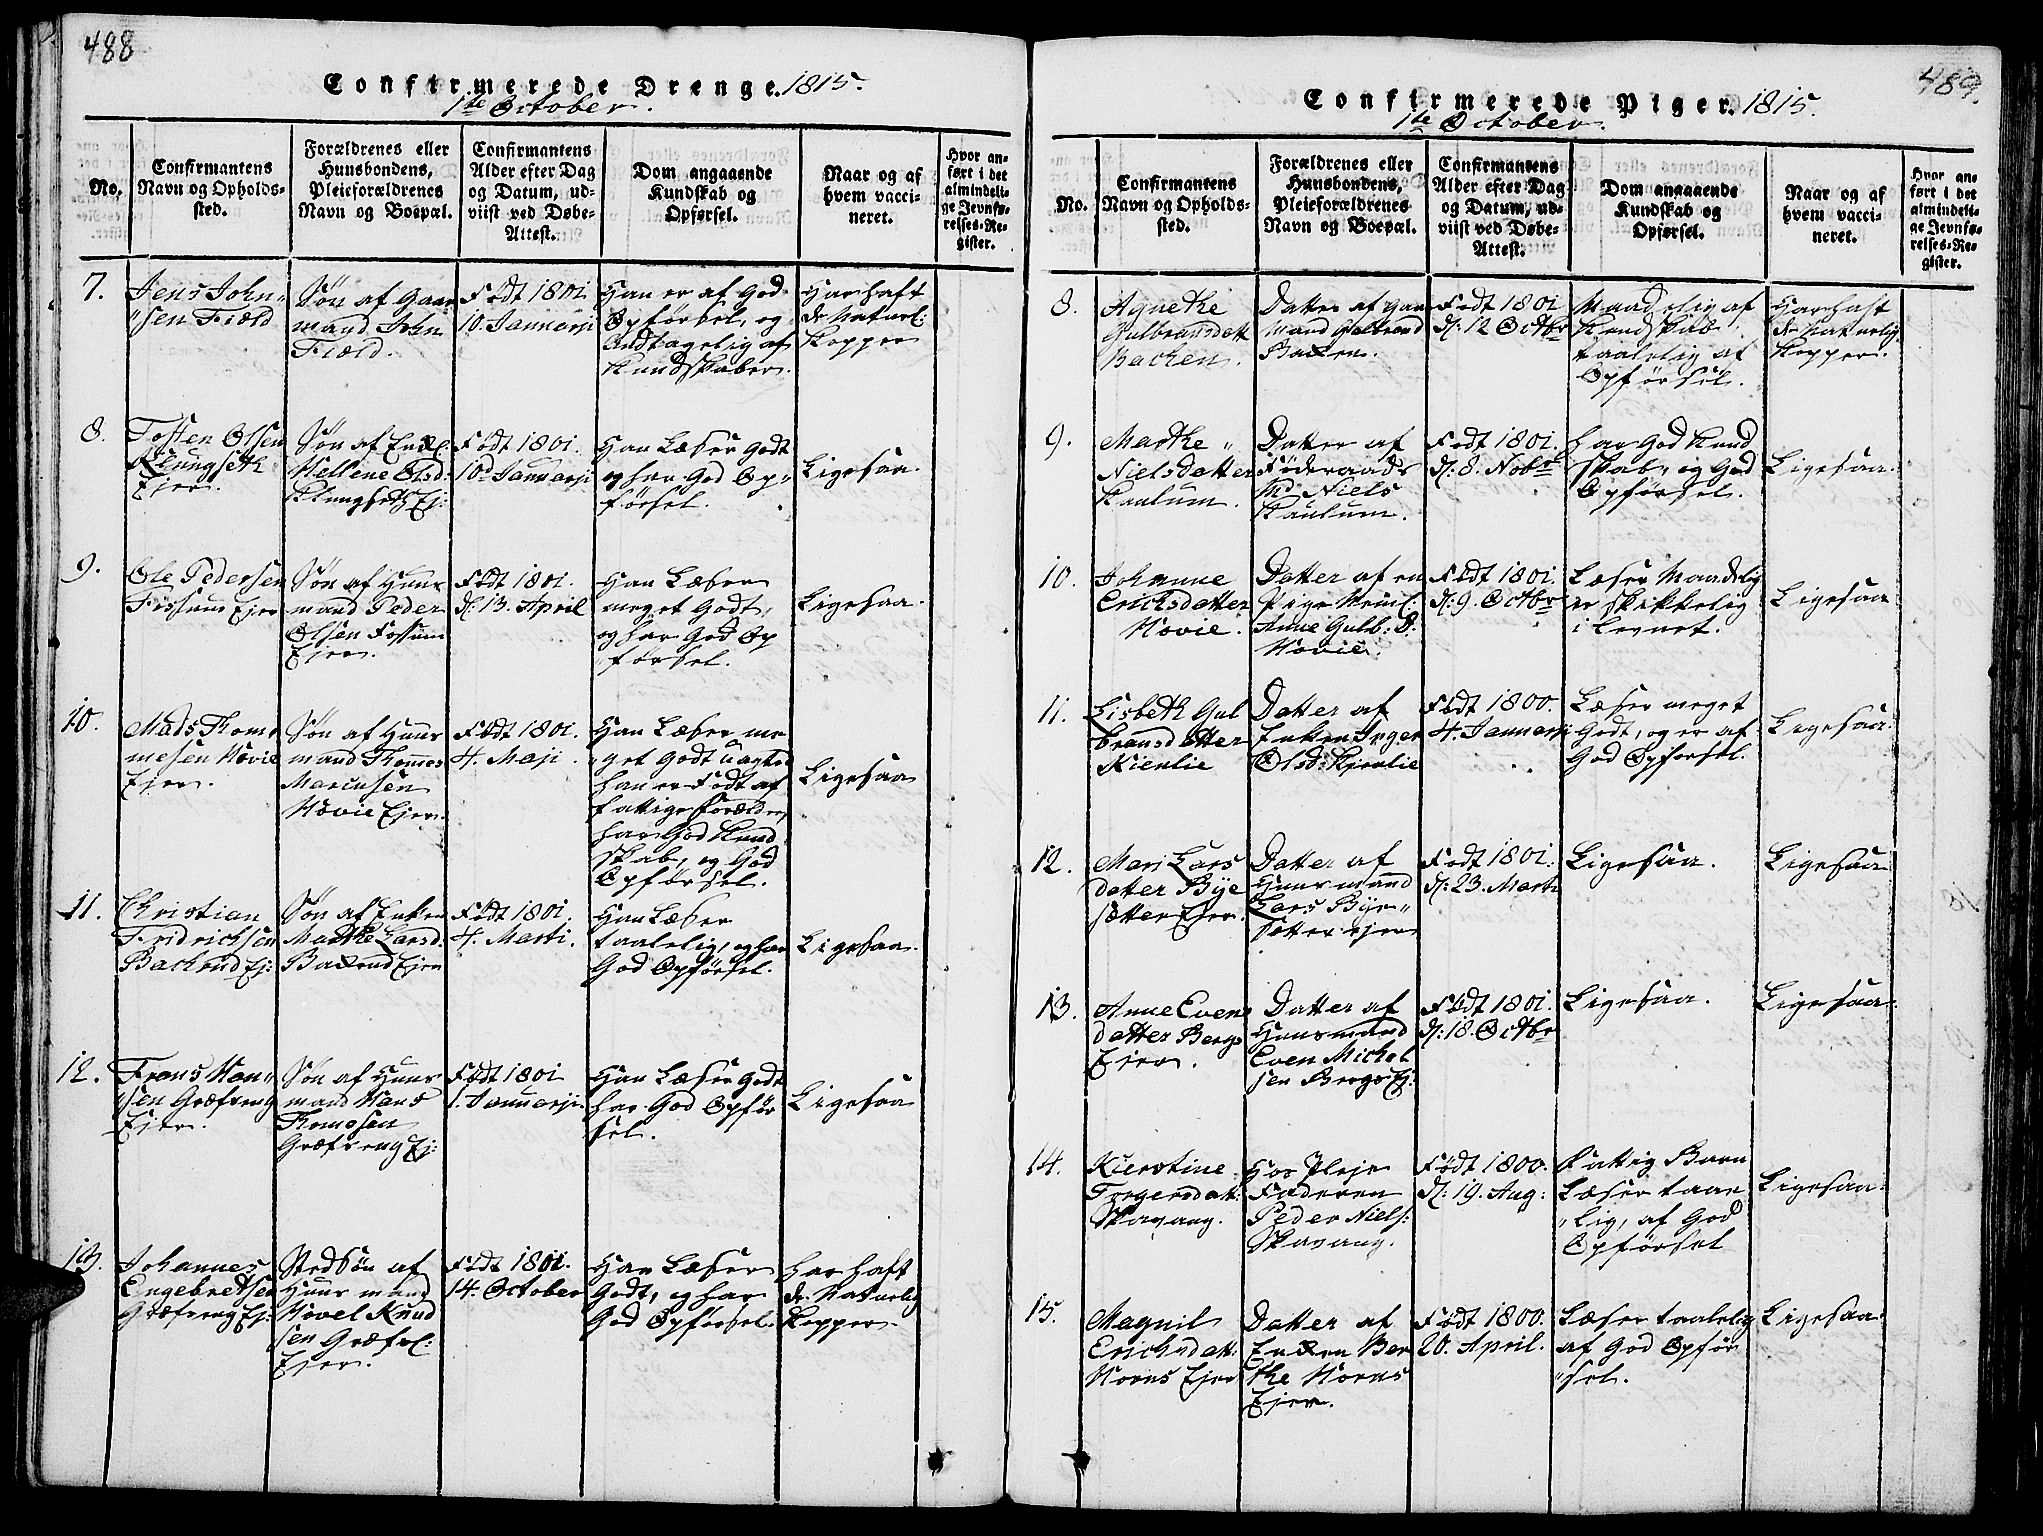 488
Confirmerede Drenge. 1815.
1te October.
No.
Confirmantens
Navn og Opholds-
sted.
Forældrenes eller
Huusbondens,
Pleieforældrenes
Navn og Boepæl.
Confirmantens
Alder efter Dag
og Datum, ud-
viist ved Døbe-
Attest.
Dom angaaende
Kundskab og
Opførsel.
Naar og af
hvem vacci-
neret.
Hvor an-
ført i det
almindeli-
ge Jevnfø-
relses-Re-
gister.
7.
Jens John„
„sen Field
Søn af Gaar
mand John
Field.
Født 1801
10. Januarji
Han er af God
Opførsel, og
Andtagelig af
Kundskaber.
Har haft
de Naturl:
Kopper
8.
Tosten Olsen
Klungseth
Ejer.
Søn af Enk.
Hellene Olsd:
Klungseth Ej:
Født 1801.
10d Januarji
Han Læser Godt
og har God Op„
førsel.
Ligesaa.
9.
Ole Pedersen
Fossum Ejer
Søn af Huus
mand Peder
Olsen Fossum
Ejer.
Født 1801.
d: 13. April
Han Læser
meget Godt,
og har God Op
„førsel.
Ligesaa.
10.
Mads Thom
mesen Hovie
Ejer.
Søn af Huus
mand Thomes
Marcusen
Hovie Ejer.
Født 1801.
4. Maji.
Han Læser me
„get Godt uagted
han er Født af
fattige Forældre,
har God Kund
skab, og God
Opførsel.
Ligesaa
11.
Christian
Fridrichsen
Bachrud Ej:
Søn af Enken
Marthe Larsd.
Bakrud Ejer
Født 1801.
4. Marti.
Han Læser
taalelig, og har
God Opførsel.
Ligesaa.
12.
Frans Han„
„sen Græfseng
Ejer.
Søn af Huus
mand Hans
Thomesen
Græfseng Ej:
Født 1801
1. Januarji.
Han Læser Godt
har God Opfør
sel.
Ligesaa
13.
Johannes
Engebretsen
Græfseng Ej:
Stedsøn af
Huus mand
Hovel Knud
sen Græfs:
Ejer.
Født 1801.
14. October
Han Læser
Godt, og har
God Opførsel.
Har haft
de Naturlig
Kopper.
489.
Confirmerede Piger. 1815.
1te October.
No.
Confirmantens
Navn og Opholds-
sted.
Forældrenes eller
Huusbondens,
Pleieforældrenes
Navn og Boepæl.
Confirmantens
Alder efter Dag
og Datum, ud-
viist ved Døbe-
Attest.
Dom angaaende
Kundskab og
Opførsel.
Naar og af
hvem vacci-
neret.
Hvor an-
ført i det
almindeli-
ge Jevnfø-
relses-Re-
gister.
8.
Agnethe
Gulbransdatt
Bachen.
Datter af Gaar
mand Gulbrand
Baken.
Født 1801
d: 12 Octbr
Maadelig af
Kundskab,
taalelig af
Opførsel.
Har haft
de naturlig
Kopper.
9.
Marthe „
Nielsdatter
Kaulum.
Datter af
Føderaads
Md Niels
Kaulum.
Født 1801.
d: 8. Nobr
har God Kund
skab, og God
Opførsel.
Ligesaa.
10.
Johanne
Erichsdatter
Hovie.
Datter af en
Pige Navnl:
Anne Gulb: D:
Hovie.
Født 1801.
d: 9. Octbr
Læser Maadelig
er skikkelig
i Levnet.
Ligesaa
11.
Lisbeth Gul
bransdatter
Kienlie
Datter af
Enken Inger
Olsd: Kjenlie
Født 1800.
4. Januarji
Læser meget
Godt, og er af
God Opførsel.
Ligesaa.
12.
Mari Lars
datter Bye
sætter Ejer.
Datter af
Huusmand
Lars Bye„
sætter ejer
Født 1801.
d: 23. Marti
Ligesaa.
Ligesaa
13.
Anne Evens
datter Bergs
Ejer.
Datter af
Huusmand
Even Michel
sen Bergs Ej:
Født 1801.
d: 18. Octbr
Ligesaa.
Ligesaa.
14.
Kierstine
Torgersdatt:
Skavang.
Hos Pleje
Faderen
Peder Niels:
Skavang.
Født 1800.
d: 19. Aug:
Fattig Barn
Læser taae
„lig, af God
Opførsel
Ligesaa.
15.
Magnil
Erichsdatt:
Horns Ejer
Datter af
Enken Ber
the Horns
Ejer.
Født 1800.
20. April.
Læser taalelig
af God Opfør
„sel.
Ligesaa